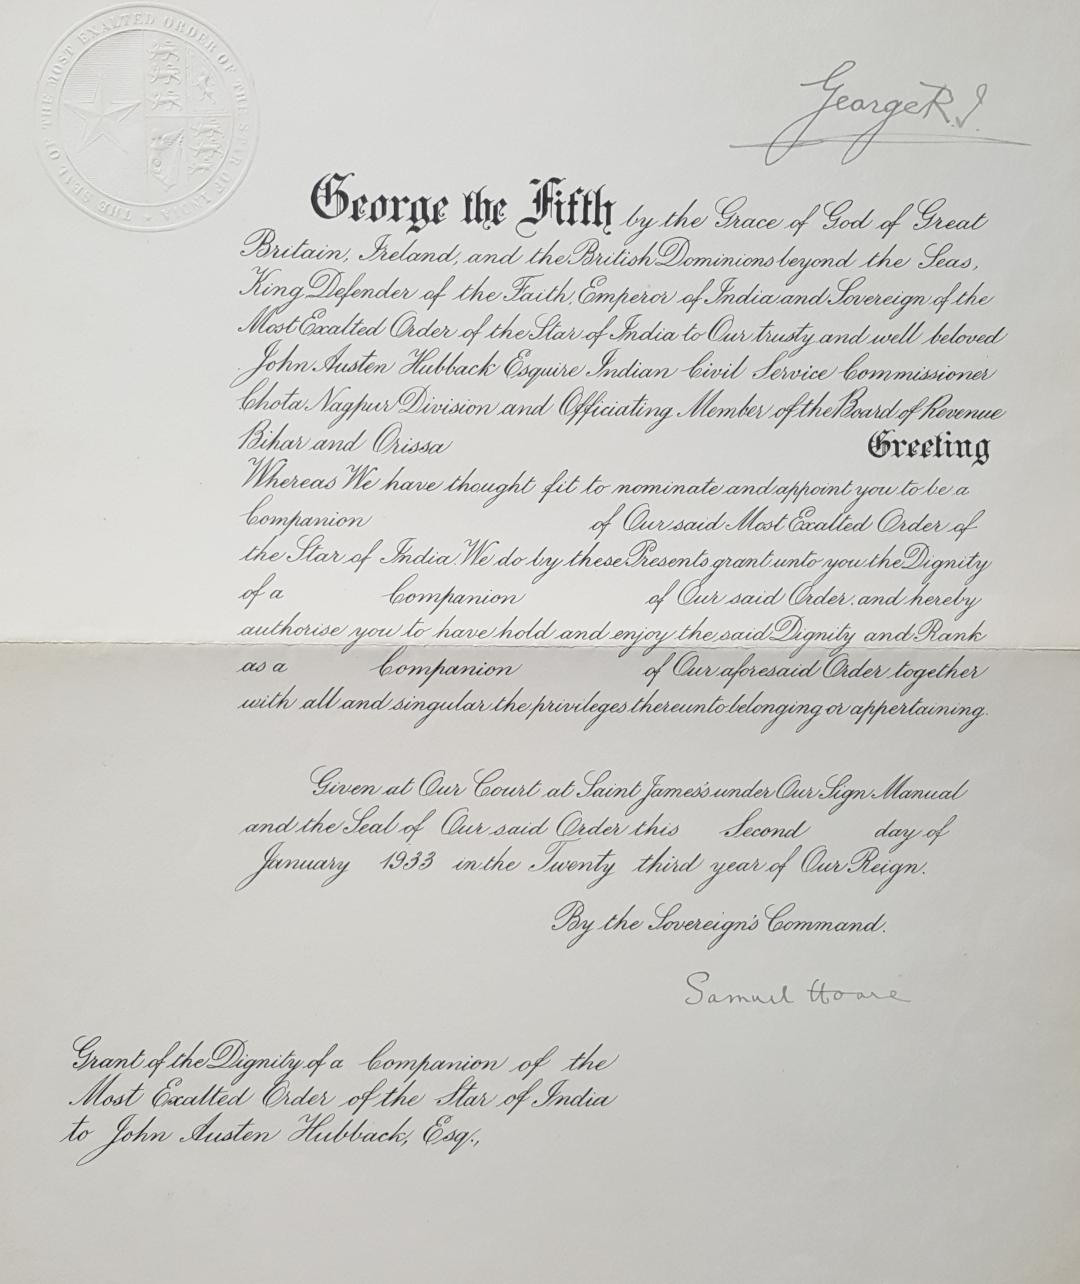 THE SEAL OF THE MOST EXALTED ORDER OF THE STAR OF INDIA
George R.I.
George the Fifth by the Grace of God of Great
Britain, Ireland, and the British Dominions beyond the Seas,
King, Defender of the Faith, Emperor of India and Sovereign of the
Most Exalted Order of the Star of India to Our trusty and well beloved
John Austen Hubback Esquire Indian Civil Service Commissioner
Chota Nagpur Division and Officiating Member of the Board of Revenue
Bihar and Orissa Greeting
Whereas We have thought fit to nominate and appoint you to be a
Companion of Our said Most Exalted Order of
the Star of India. We do by these Presents grant unto you the Dignity
of a Companion of Our said Order, and hereby
authorise you to have hold and enjoy the said Dignity and Rank
as a Companion of Our aforesaid Order together
with all and singular the privileges thereunto belonging or appertaining.
Given at Our Court at Saint James's under Our Sign Manual
and the Seal of Our said Order this Second day of
January 1933 in the Twenty third year of Our Reign.
By the Sovereign's Command.
Samuel Hoare
Grant of the Dignity of a Companion of the
Most Exalted Order of the Star of India
to John Austen Hubback, Esq.,